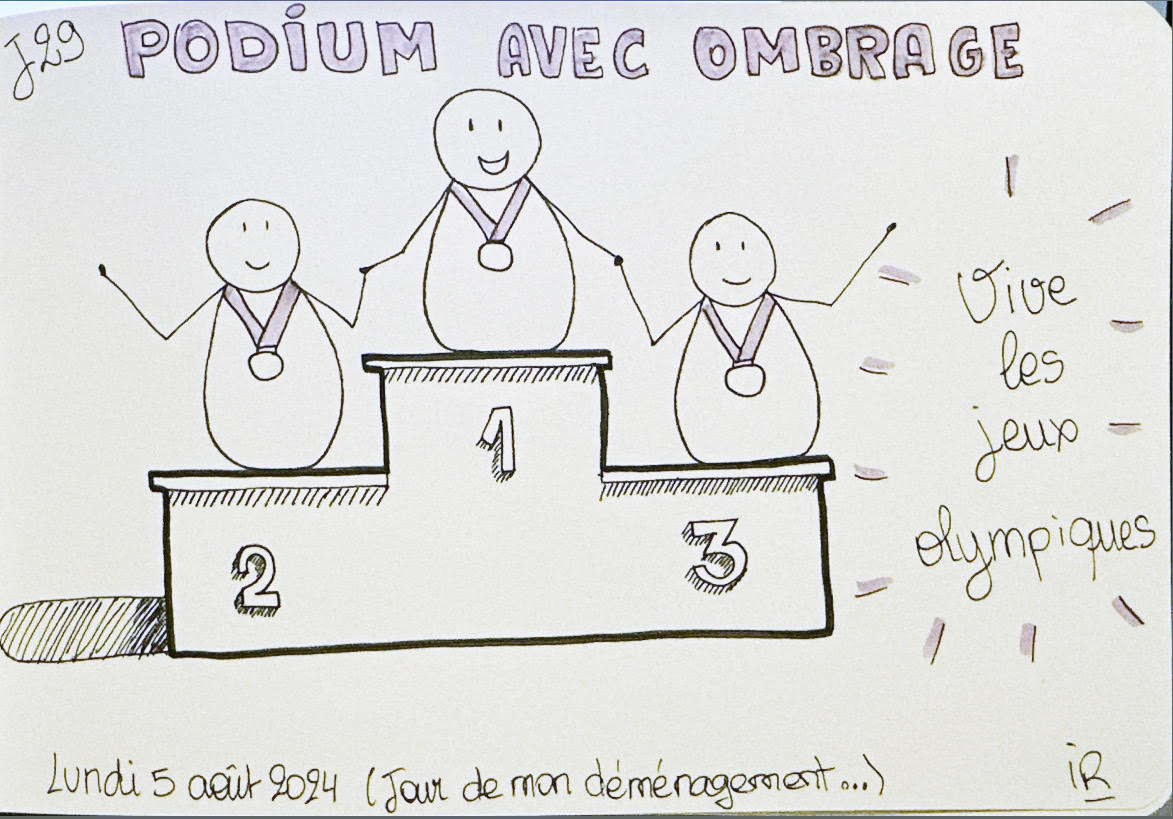 J29
PODIUM AVEC OMBRAGE
Vive
les
jeux
olympiques
1
2
3
Lundi 5 août 2024 (Jour de mon déménagement...)
iR